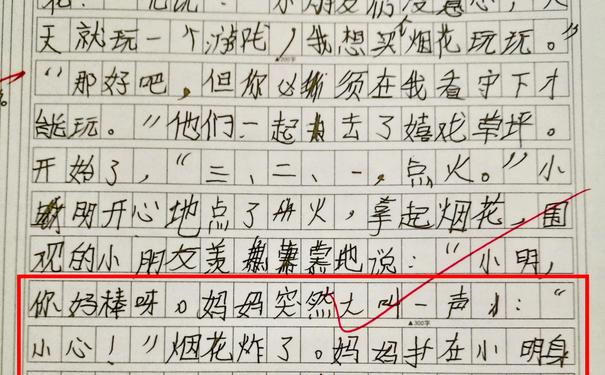 天就玩一个游戏，我想买个烟花玩玩。”
▲200字
“那好吧，但你必须在我看守下才
能玩。”他们一起去了嬉戏草坪。
开始了，“三、二、一，点火。”小
明开心地点了火，拿起烟花，围
观的小朋友羡慕地说：“小明，
你好棒呀。妈妈突然大叫一声：“
▲300字
小心！”烟花炸了。妈妈扑在小明身